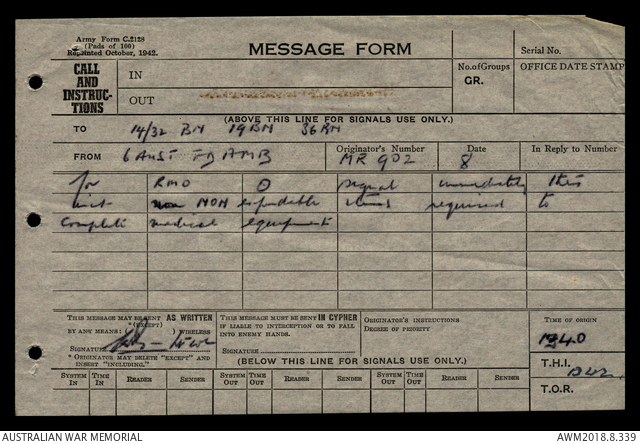 Army Form C.2128
(Pads of 100)
Reprinted October, 1942.
MESSAGE FORM
Serial No.
CALL AND INSTRUC-TIONS
IN
OUT
No. of Groups
GR.
OFFICE DATE STAMP
(ABOVE THIS LINE FOR SIGNALS USE ONLY.)
TO 14/32 BN 19 BN 36 BN
FROM 6 AUST FD AMB
Originator's Number
MR 902
Date
8
In Reply to Number
for RMO signal immediately this
unit NON expendable items required to
complete medical equipment
THIS MESSAGE MAY BE SENT AS WRITTEN
*(EXCEPT)
BY ANY MEANS: ( ) WIRELESS
SIGNATURE
* ORIGINATOR MAY DELETE "EXCEPT" AND
INSERT "INCLUDING."
THIS MESSAGE MUST BE SENT IN CYPHER
IF LIABLE TO INTERCEPTION OR TO FALL
INTO ENEMY HANDS.
SIGNATURE
ORIGINATOR'S INSTRUCTIONS
DEGREE OF PRIORITY
TIME OF ORIGIN
(BELOW THIS LINE FOR SIGNALS USE ONLY.)
T.H.I.
T.O.R.
SYSTEM IN TIME IN READER SENDER SYSTEM OUT TIME OUT READER SENDER SYSTEM OUT TIME OUT READER SENDER
AUSTRALIAN WAR MEMORIAL
AWM2018.8.339